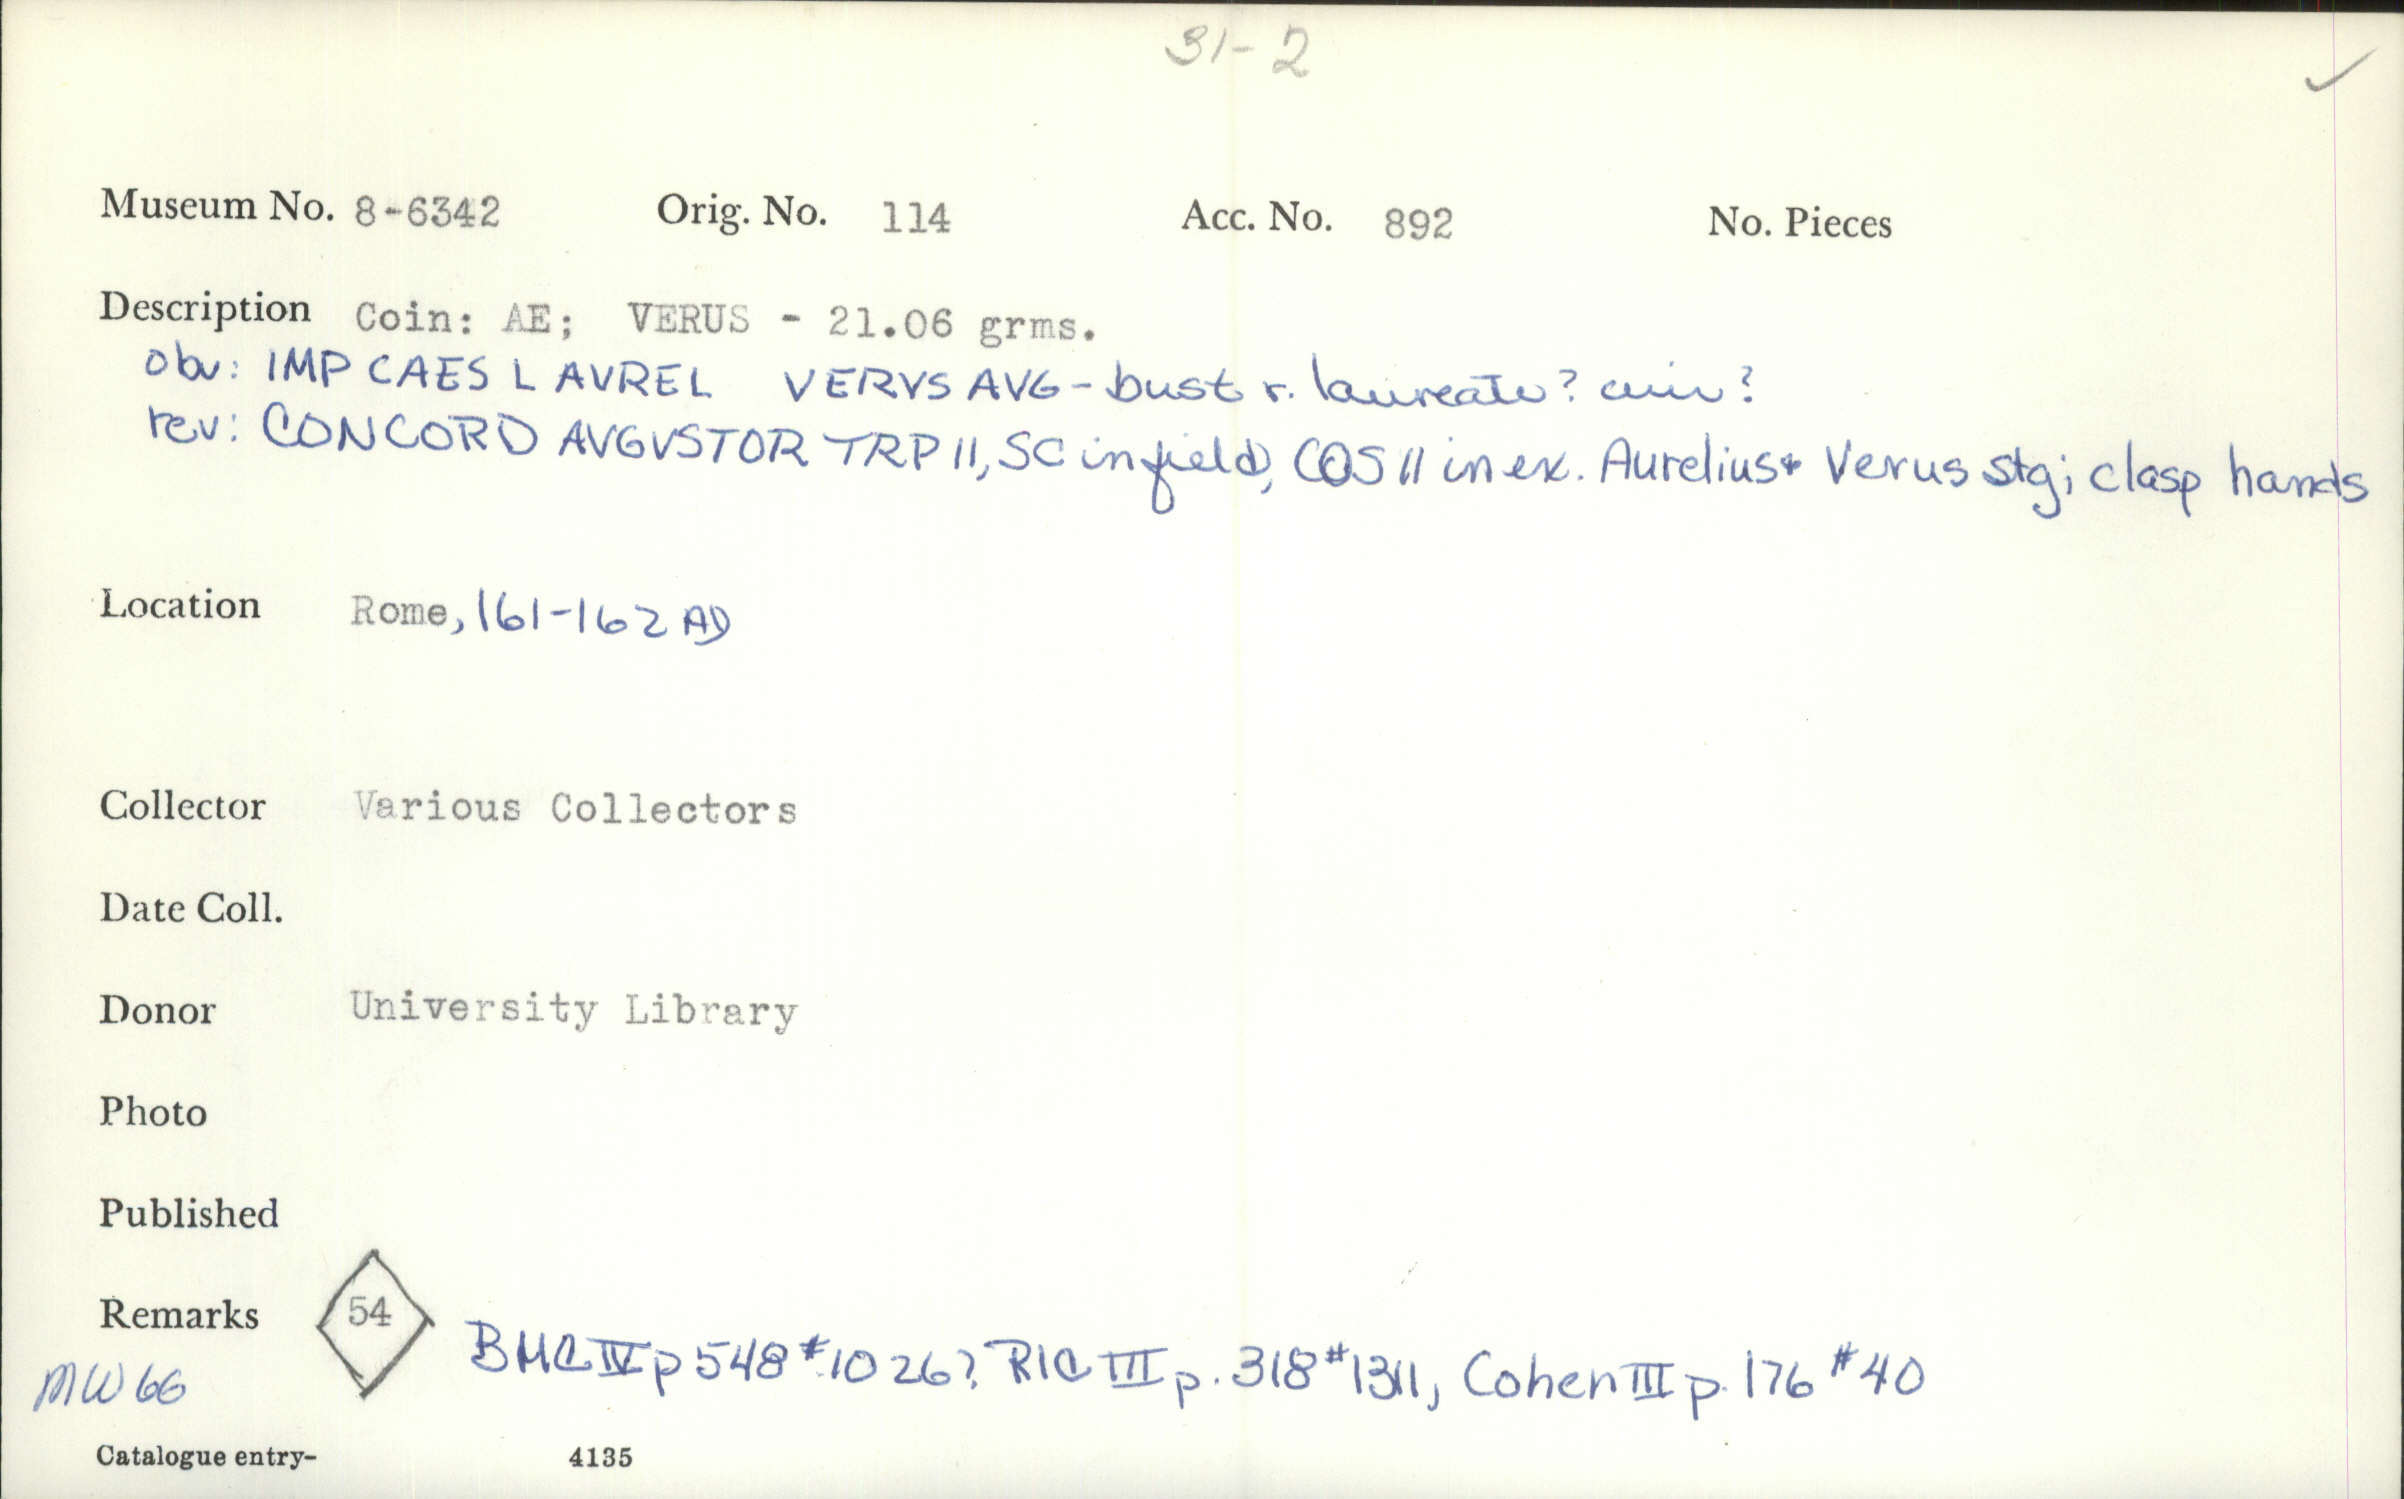 31-2
Museum No. 8-6342 Orig. No. 114 Acc. No. 892 No. Pieces
Description Coin: AE; VERUS - 21.06 grms.
obv: IMP CAES L AVREL VERVS AVG - bust r. laureate? cuir?
rev: CONCORD AVGVSTOR TRP II, SC in field, COS II in ex. Aurelius + Verus stg; clasp hands
Location Rome, 161-162 AD
Collector Various Collectors
Date Coll.
Donor University Library
Photo
Published
Remarks 54 BMC IV p 548 #1026?, RIC III p. 318 #1311, Cohen III p. 176 #40
MW 66
Catalogue entry- 4135